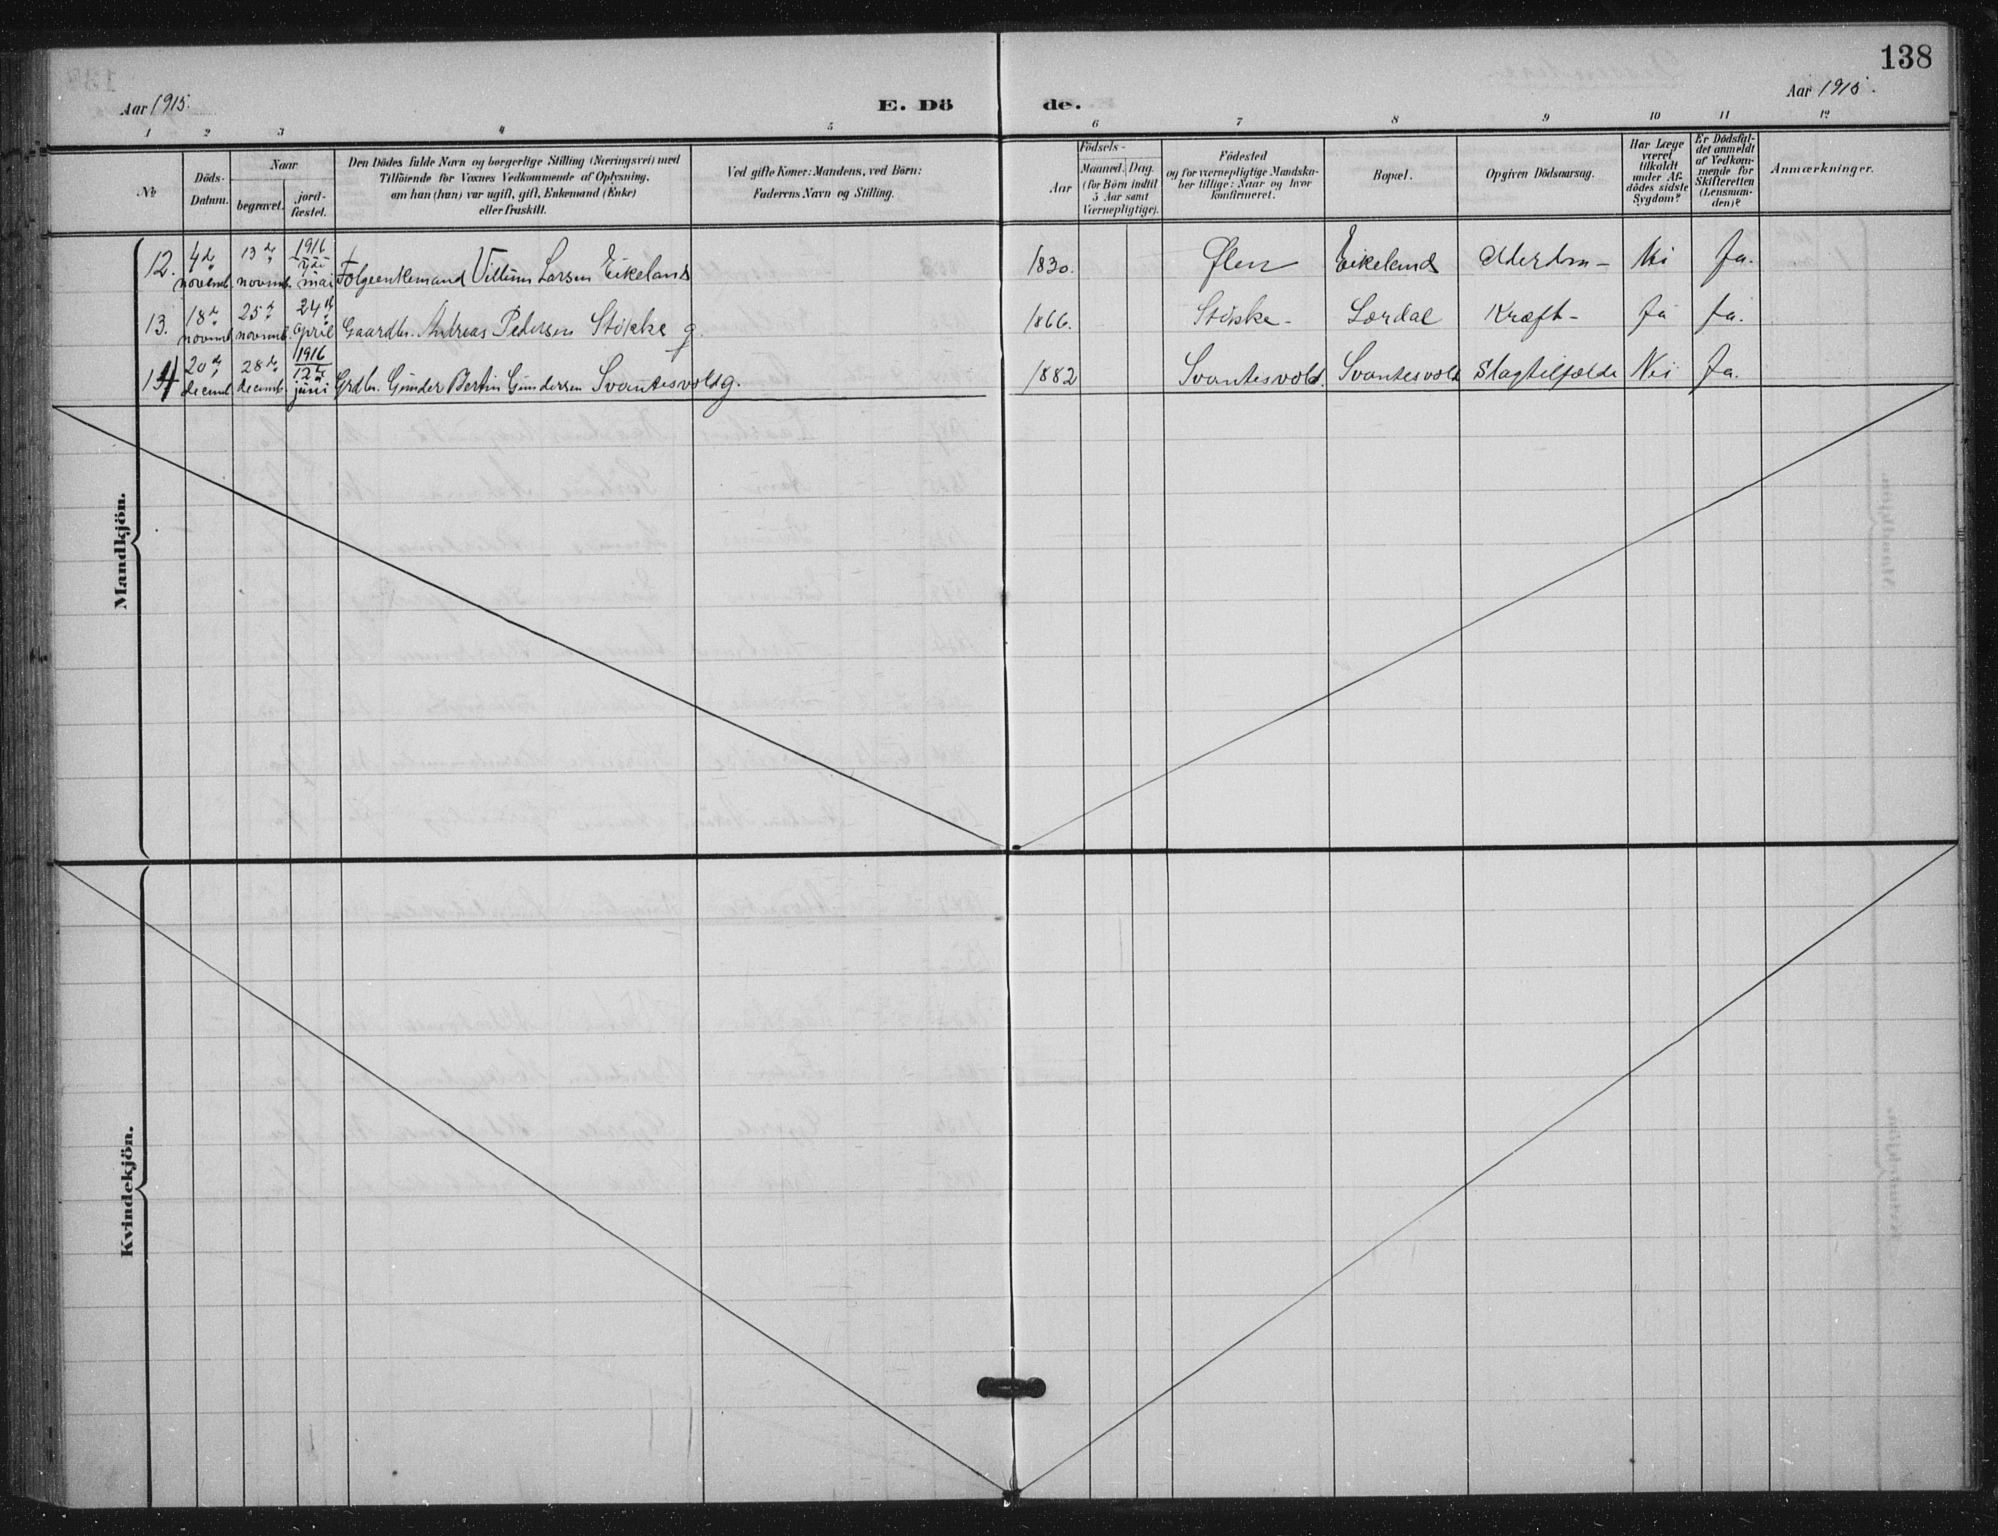 138
Aar 1915.
E. Dö de.
Aar 1915.
1 2 3 4 5 6 7 8 9 10 11 12
No
Döds-
Datum.
Naar
begravet.
jord-
fæstet.
Den Dödes fulde Navn og borgerlige Stilling (Næringsvei) med
Tilföiende for Voxnes Vedkommende af Oplysning,
om han (hun) var ugift, gift, Enkemand (Enke)
eller fraskilt.
Ved gifte Koner: Mandens, ved Börn:
Faderens Navn og Stilling.
Födsels-
Aar
Maaned. Dag.
(for Börn indtil
5 Aar samt
Værnepligtige).
Födested
og for værnepligtige Mandska-
ber tillige: Naar og hvor
konfirmeret.
Bopæl.
Opgiven Dödsaarsag.
Har Læge
været
tilkaldt
under Af-
dödes sidste
Sygdom?
Er Dödsfal-
det anmeldt
af Vedkom-
mende for
Skifteretten
(Lensman-
den)?
Anmærkninger.
12. 4de novemb. 13de novemb. 1916 mai Folgeenkemand Larsen Eikeland 1830. Eikeland Alderdom - Nei Ja.
13. 18de novemb. 25de novemb. 24de april Gaardbr. Andreas Pedersen Stökke g. 1866. Stökke - Lordal Kræft - Ja Ja.
14 20de decemb. 28de decemb. 1916 12te juni Grdbr. Gunder Bertin Gundersen Svantesvold g. 1882 Svantesvold. Svantesvold Slagtilfælde Nei Ja.
Mandkjön.
Kvindekjön.